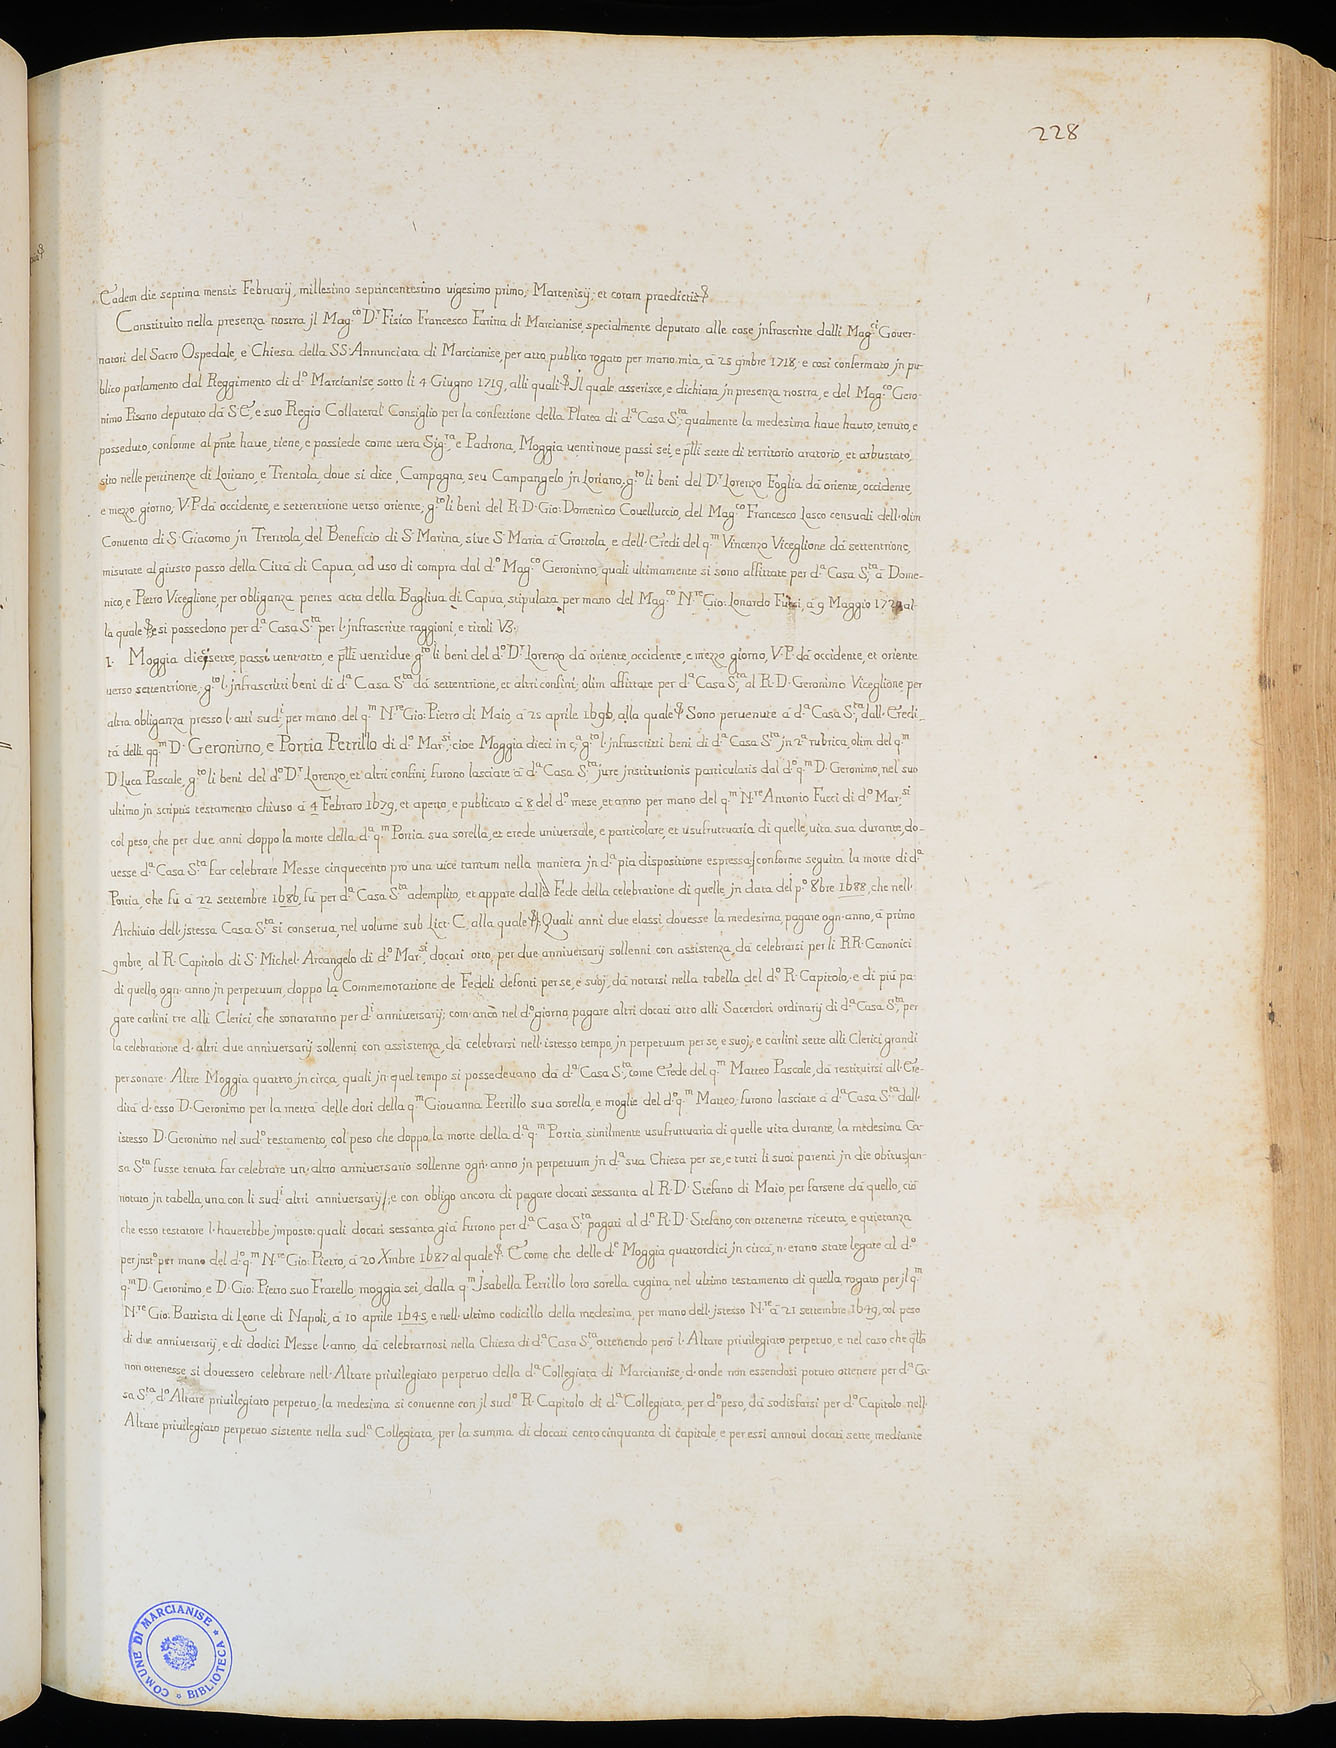 228
Eadem die septima mensis Februarij, millesimo septincentesimo uigesimo primo; Martenisij; et coram praedictis
Constituito nella presenza nostra jl Mag.co D.r Fisico Francesco Farina di Marcianise, specialmente deputato alle cose jnfrascritte dalli Mag.ci Gouer-
natori del Sacro Ospedale, e Chiesa della SS. Annunciata di Marcianise, per atto publico rogato per mano mia, à 25 9mbre 1718; e così confermato jn pu-
blico parlamento dal Reggimento di d.o Marcianise, sotto li 4 Giugno 1719, alli quali Jl quale asserisce, e dichiara jn presenza nostra, e del Mag.co Gero-
nimo Pisano deputato dà S.E., e suo Regio Collateral Consiglio per la confettione della Platea di d.a Casa S.ta, qualmente la medesima haue hauto, tenuto, e
posseduto, conforme al pnte haue, tiene, e possiede come uera Sig.ra, e Padrona, Moggia uentinoue, passi sei, e plli sette di territorio aratorio, et arbustato,
sito nelle pertinenze di Loriano, e Trentola, doue si dice, Campagna, seu Campangelo jn Loriano; g.to li beni del D.r Lorenzo Foglia dà oriente, occidente,
e mezzo giorno; V.P. dà occidente, e settentrione uerso oriente; g.to li beni del R.D. Gio: Domenico Couelluccio, del Mag.co Francesco Lasco censuali dell'olim
Conuento di S. Giacomo jn Trentola, del Beneficio di S. Marina, siue S. Maria à Grottola, e dell'Eredi del q.m Vincenzo Viceglione dà settentrione,
misurate al giusto passo della Città di Capua, ad uso di compra dal d.o Mag.co Geronimo; quali ultimamente si sono affittate per d.a Casa S.ta à Dome-
nico, e Pietro Viceglione, per obliganza penes acta della Bagliua di Capua, stipulata per mano del Mag.co N.re Gio: Lonardo à 9 Maggio al
la quale e si possedono per d.a Casa S.ta per l'jnfrascritte raggioni, e titoli V3.
1. Moggia diecisette, passi uent'otto, e plli uentidue g.to li beni del d.o D.r Lorenzo dà oriente, occidente, e mezzo giorno, V.P. dà occidente, et oriente
uerso settentrione; g.to l'jnfrascritti beni di d.a Casa S.ta dà settentrione, et altri confini; olim affittate per d.a Casa S.ta, al R.D. Geronimo Viceglione per
altra obliganza presso l'atti sud.i, per mano del q.m N.re Gio: Pietro di Maio, à 25 aprile 1696, alla quale Sono peruenute à d.a Casa S.ta, dall'Eredi-
tà delli qq.m D. Geronimo, e Portia Petrillo di d.o Mar.si; cioe Moggia dieci in c.a g.to l'jnfrascritti beni di d.a Casa S.ta jn 2.a rubrica, olim del q.m
D. Luca Pascale, g.to li beni del d.o D.r Lorenzo, et altri confini furono lasciate à d.a Casa S.ta, jure jnstitutionis particularis dal d.o q.m D. Geronimo, nel suo
ultimo jn scriptis testamento chiuso à 4 Febraro 1679, et aperto, e publicato à 8 del d.o mese, et anno per mano del q.m N.re Antonio Fucci di d.o Mar.si
col peso, che per due anni doppo la morte della d.a q.m Portia sua sorella, et erede uniuersale, e particolare, et usufruttuaria di quelle, uita sua durante, do-
uesse d.a Casa S.ta far celebrare Messe cinquecento prò una uice tantum nella maniera jn d.a pia dispositione espressa; conforme seguita la morte di d.a
Portia, che fù à 22 settembre 1686, fù per d.a Casa S.ta ademplito, et appare dalla Fede della celebratione di quelle, jn data del p.o 8bre 1688, che nell'
Archiuio dell'jstessa Casa S.ta si conserua, nel uolume sub Litt. C, alla quale Quali anni due elassi, douesse la medesima, pagare ogn'anno, à primo
9mbre, al R. Capitolo di S. Michel'Arcangelo di d.o Mar.si, docati otto, per due anniuersarij sollenni con assistenza, dà celebrarsi per li RR. Canonici
di quello, ogn'anno jn perpetuum, doppo la Commemoratione de Fedeli defonti per se, e suoj, dà notarsi nella tabella del d.o R. Capitolo; e di più pa-
gare carlini tre alli Clerici, che sonaranno per d.i anniuersarij; com'ancò nel d.o giorno, pagare altri docati otto alli Sacerdoti ordinarij di d.a Casa S.ta, per
la celebratione d'altri due anniuersarij sollenni con assistenza, dà celebrarsi nell'istesso tempo, jn perpetuum per se, e suoj; e carlini sette alli Clerici grandi
per sonare. Altre Moggia quattro jn circa, quali jn quel tempo si possedeuano dà d.a Casa S.ta, come Erede del q.m Matteo Pascale, dà restituirsi all'Ere-
dità d'esso D. Geronimo per la mettà delle doti della q.m Giouanna Petrillo sua sorella, e moglie del d.o q.m Matteo; furono lasciate à d.a Casa S.ta dall'
istesso D. Geronimo nel sud.o testamento, col peso che doppo la morte della d.a q.m Portia, similmente usufruttuaria di quelle uita durante, la medesima Ca-
sa S.ta fusse tenuta far celebrare un'altro anniuersario sollenne ogn'anno jn perpetuum jn d.a sua Chiesa per se, e tutti li suoi parenti jn die obitus, an-
notato jn tabella, una con li sud.i altri anniuersarij; e con obligo ancora di pagare docati sessanta al R.D. Stefano di Maio, per farsene dà quello, ciò
che esso testatore l'hauerebbe jmposto: quali docati sessanta già furono per d.a Casa S.ta pagati al d.o R.D. Stefano, con ottenerne riceuta, e quietanza
per jnst.o per mano del d.o q.m N.re Gio: Pietro, à 20 Xmbre 1687 al quale E come che delle d.e Moggia quattordici jn circa, n'erano state legate al d.o
q.m D. Geronimo, e D. Gio: Pietro suo Fratello, moggia sei, dalla q.m Jsabella Petrillo loro sorella cugina, nel ultimo testamento di quella, rogato per jl q.m
N.re Gio: Battista di Leone di Napoli, à 10 aprile 1645, e nell'ultimo codicillo della medesima, per mano dell'jstesso N.re à 21 settembre 1649, col peso
di due anniuersarij, e di dodici Messe l'anno, dà celebrarnosi nella Chiesa di d.a Casa S.ta, ottenendo però l'Altare priuilegiato perpetuo, e nel caso che qllo
non ottenesse, si douessero celebrare nell'Altare priuilegiato perpetuo della d.a Collegiata di Marcianise; d'onde non essendosi potuto ottenere per d.a Ca-
sa S.ta, d.o Altare priuilegiato perpetuo; la medesima si conuenne con jl sud.o R. Capitolo di d.a Collegiata, per d.o peso, dà sodisfarsi per d.o Capitolo nell'
Altare priuilegiato perpetuo sistente nella sud.a Collegiata, per la summa di docati cento cinquanta di capitale, e per essi annoui docati sette, mediante
COMUNE DI MARCIANISE * BIBLIOTECA *